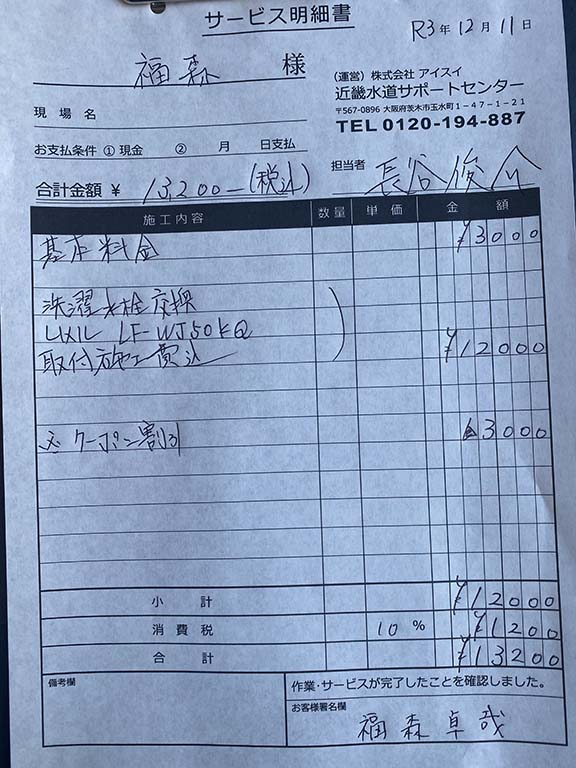 サービス明細書
R3年12月11日
福森 様
(運営) 株式会社 アイスイ
近畿水道サポートセンター
〒567-0896 大阪府茨木市玉水町1-47-1-21
TEL 0120-194-887
現場名
お支払条件 ① 現金 ② 月 日支払
担当者 長谷俊介
合計金額 ¥ 13,200-(税込)
施工内容 数量 単価 金額
基本料金 ¥3000
洗濯水栓交換
LIXIL LF-WJ50KQ
取付施工費込 ¥12000
※クーポン割引 ▲3000
小計 ¥12000
消費税 10% ¥1200
合計 ¥13200
備考欄
作業・サービスが完了したことを確認しました。
お客様署名欄
福森卓哉